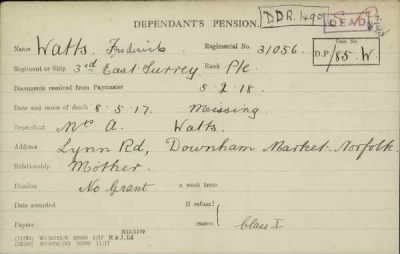 DEPENDANT'S PENSION.
D.D.R. 1490
DEAD
Name Watts. Frederick Regimental No. 31056.
Case No.
D.P./85. W.
Regiment or Ship 3rd East Surrey Rank Pte.
Documents received from Paymaster 5.2.18.
Date and cause of death 8.5.17. Missing
Dependant Mrs A. Watts.
Address Lynn Rd, Downham Market. Norfolk.
Relationship Mother.
Decision No Grant a week from
Date awarded
If refused reason Class I
Papers
H. & J. Ld